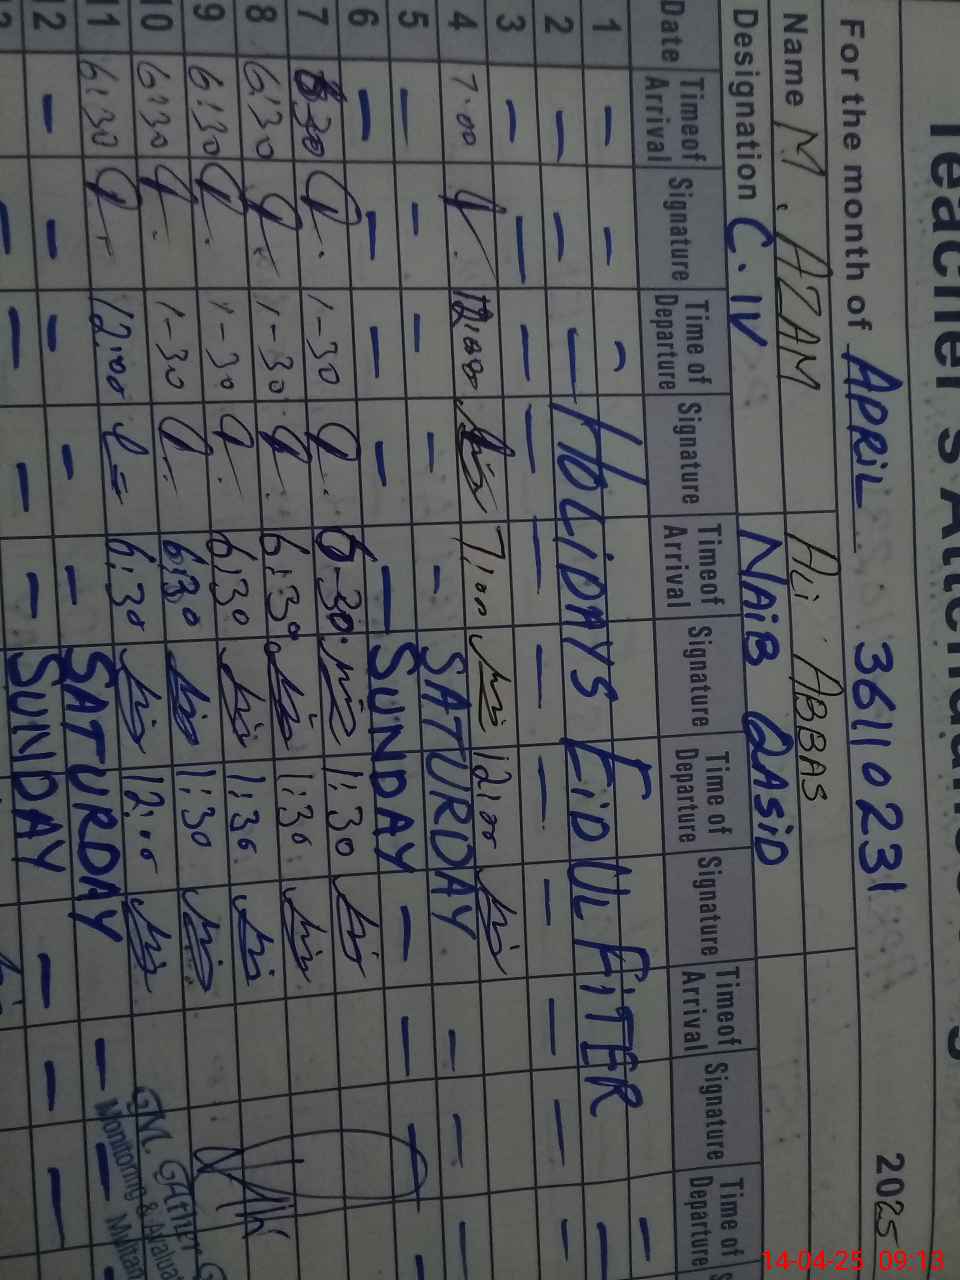 Teacher's Attendance
For the month of APRIL 36110231 2025
Name M. AZAM Ali ABBAS
Designation C.IV NAIB QASID
Date Time of Arrival Signature Time of Departure Signature Time of Arrival Signature Time of Departure Signature Time of Arrival Signature Time of Departure
1 - - -
2 - - - HOLIDAYS EID UL FITER - - -
3 - - - - - - - - - - -
4 7.00 12:00 7:00 12:00
5 - - - - - SATURDAY - - -
6 - - - - - SUNDAY - - -
7 6:30 1-30 6-30 1:30
8 6:30 1-30 6:30 1:30
9 6:30 1-30 6:30 1:30
10 6:30 1-30 6:30 1:30
11 6:30 12:00 6:30 12:00
12 - - - - - SATURDAY - -
- - - - SUNDAY - - -
GM
Monitoring &
14-04-25 09:13